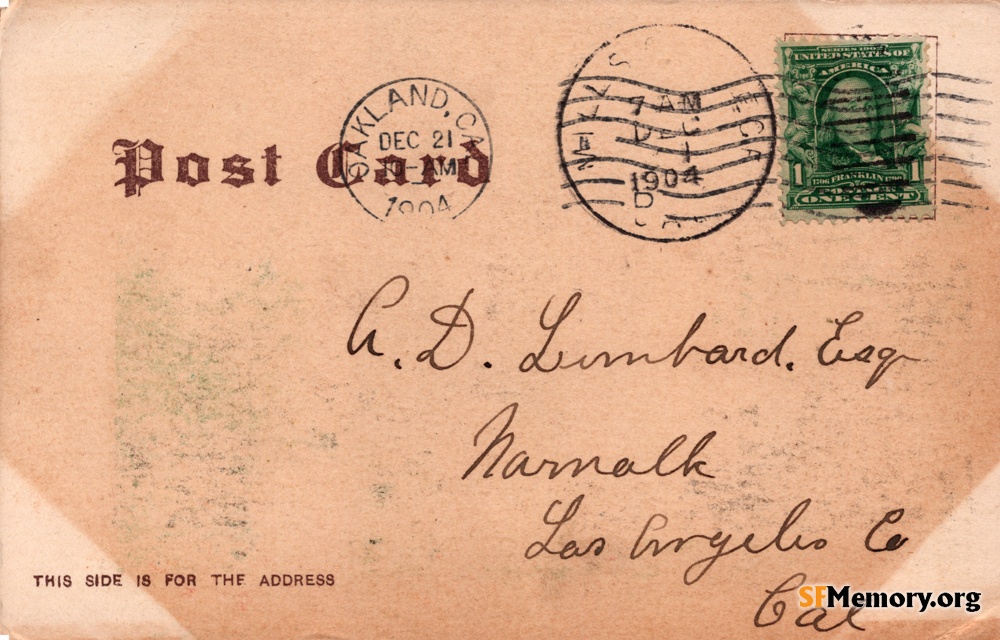 Post Card
OAKLAND, CA
DEC 21
AM
1904
7 AM
DEC
1904
SERIES 1902
UNITED STATES OF
AMERICA
1 FRANKLIN 1
POSTAGE
ONE CENT
A. D. Lumbard. Esq
Narnalk
Los Angeles Co
Cal
THIS SIDE IS FOR THE ADDRESS
SFMemory.org